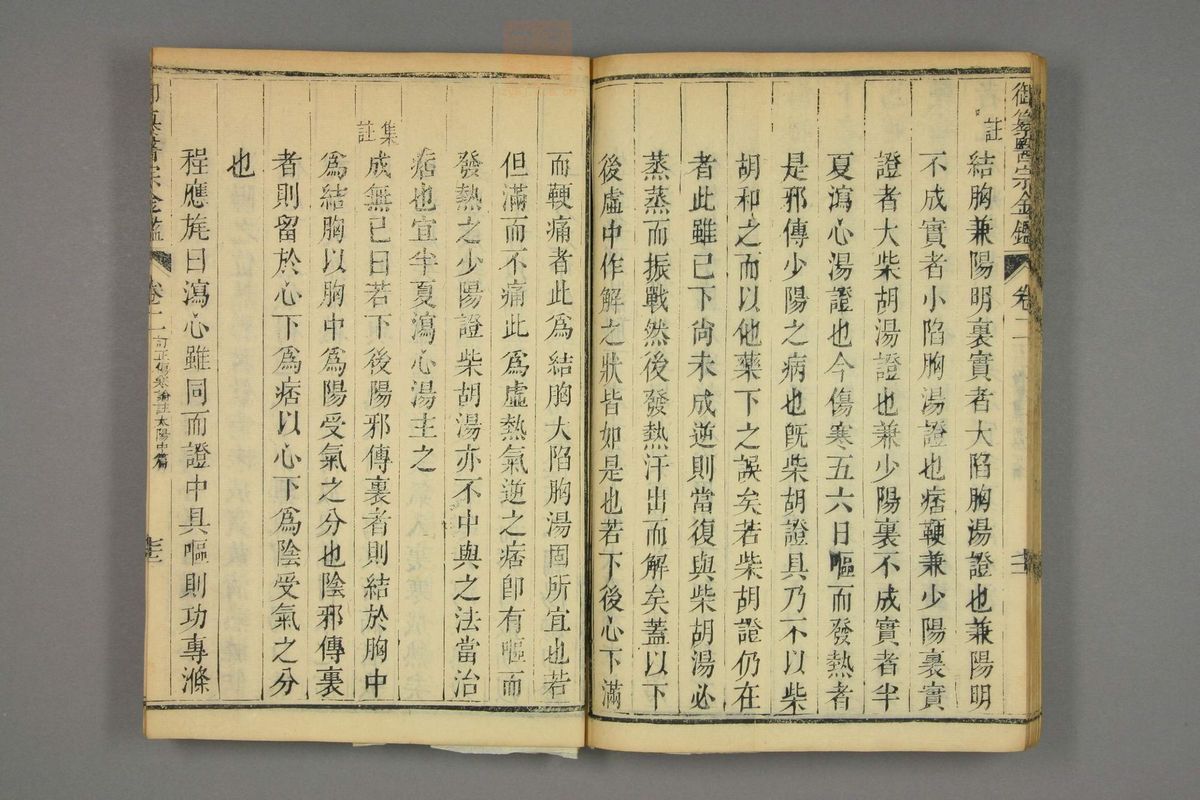 御纂醫宗金鑑 卷二
註
結胸兼陽明裏實者大陷胸湯證也兼陽明
不成實者小陷胸湯證也痞鞕兼少陽裏實
證者大柴胡湯證也兼少陽裏不成實者半
夏瀉心湯證也今傷寒五六日嘔而發熱者
是邪傳少陽之病也旣柴胡證具乃不以柴
胡和之而以他藥下之誤矣若柴胡證仍在
者此雖已下尙未成逆則當復與柴胡湯必
蒸蒸而振戰然後發熱汗出而解矣蓋以下
後虛中作解之狀皆如是也若下後心下滿
而鞕痛者此爲結胸大陷胸湯固所宜也若
但滿而不痛此爲虛熱氣逆之痞卽有嘔而
發熱之少陽證柴胡湯亦不中與之法當治
痞也宜半夏瀉心湯主之
集註
成無已曰若下後陽邪傳裏者則結於胸中
爲結胸以胸中爲陽受氣之分也陰邪傳裏
者則留於心下爲痞以心下爲陰受氣之分
也
程應旄曰瀉心雖同而證中具嘔則功專滌
御纂醫宗金鑑 卷二 訂正傷寒論註太陽中篇